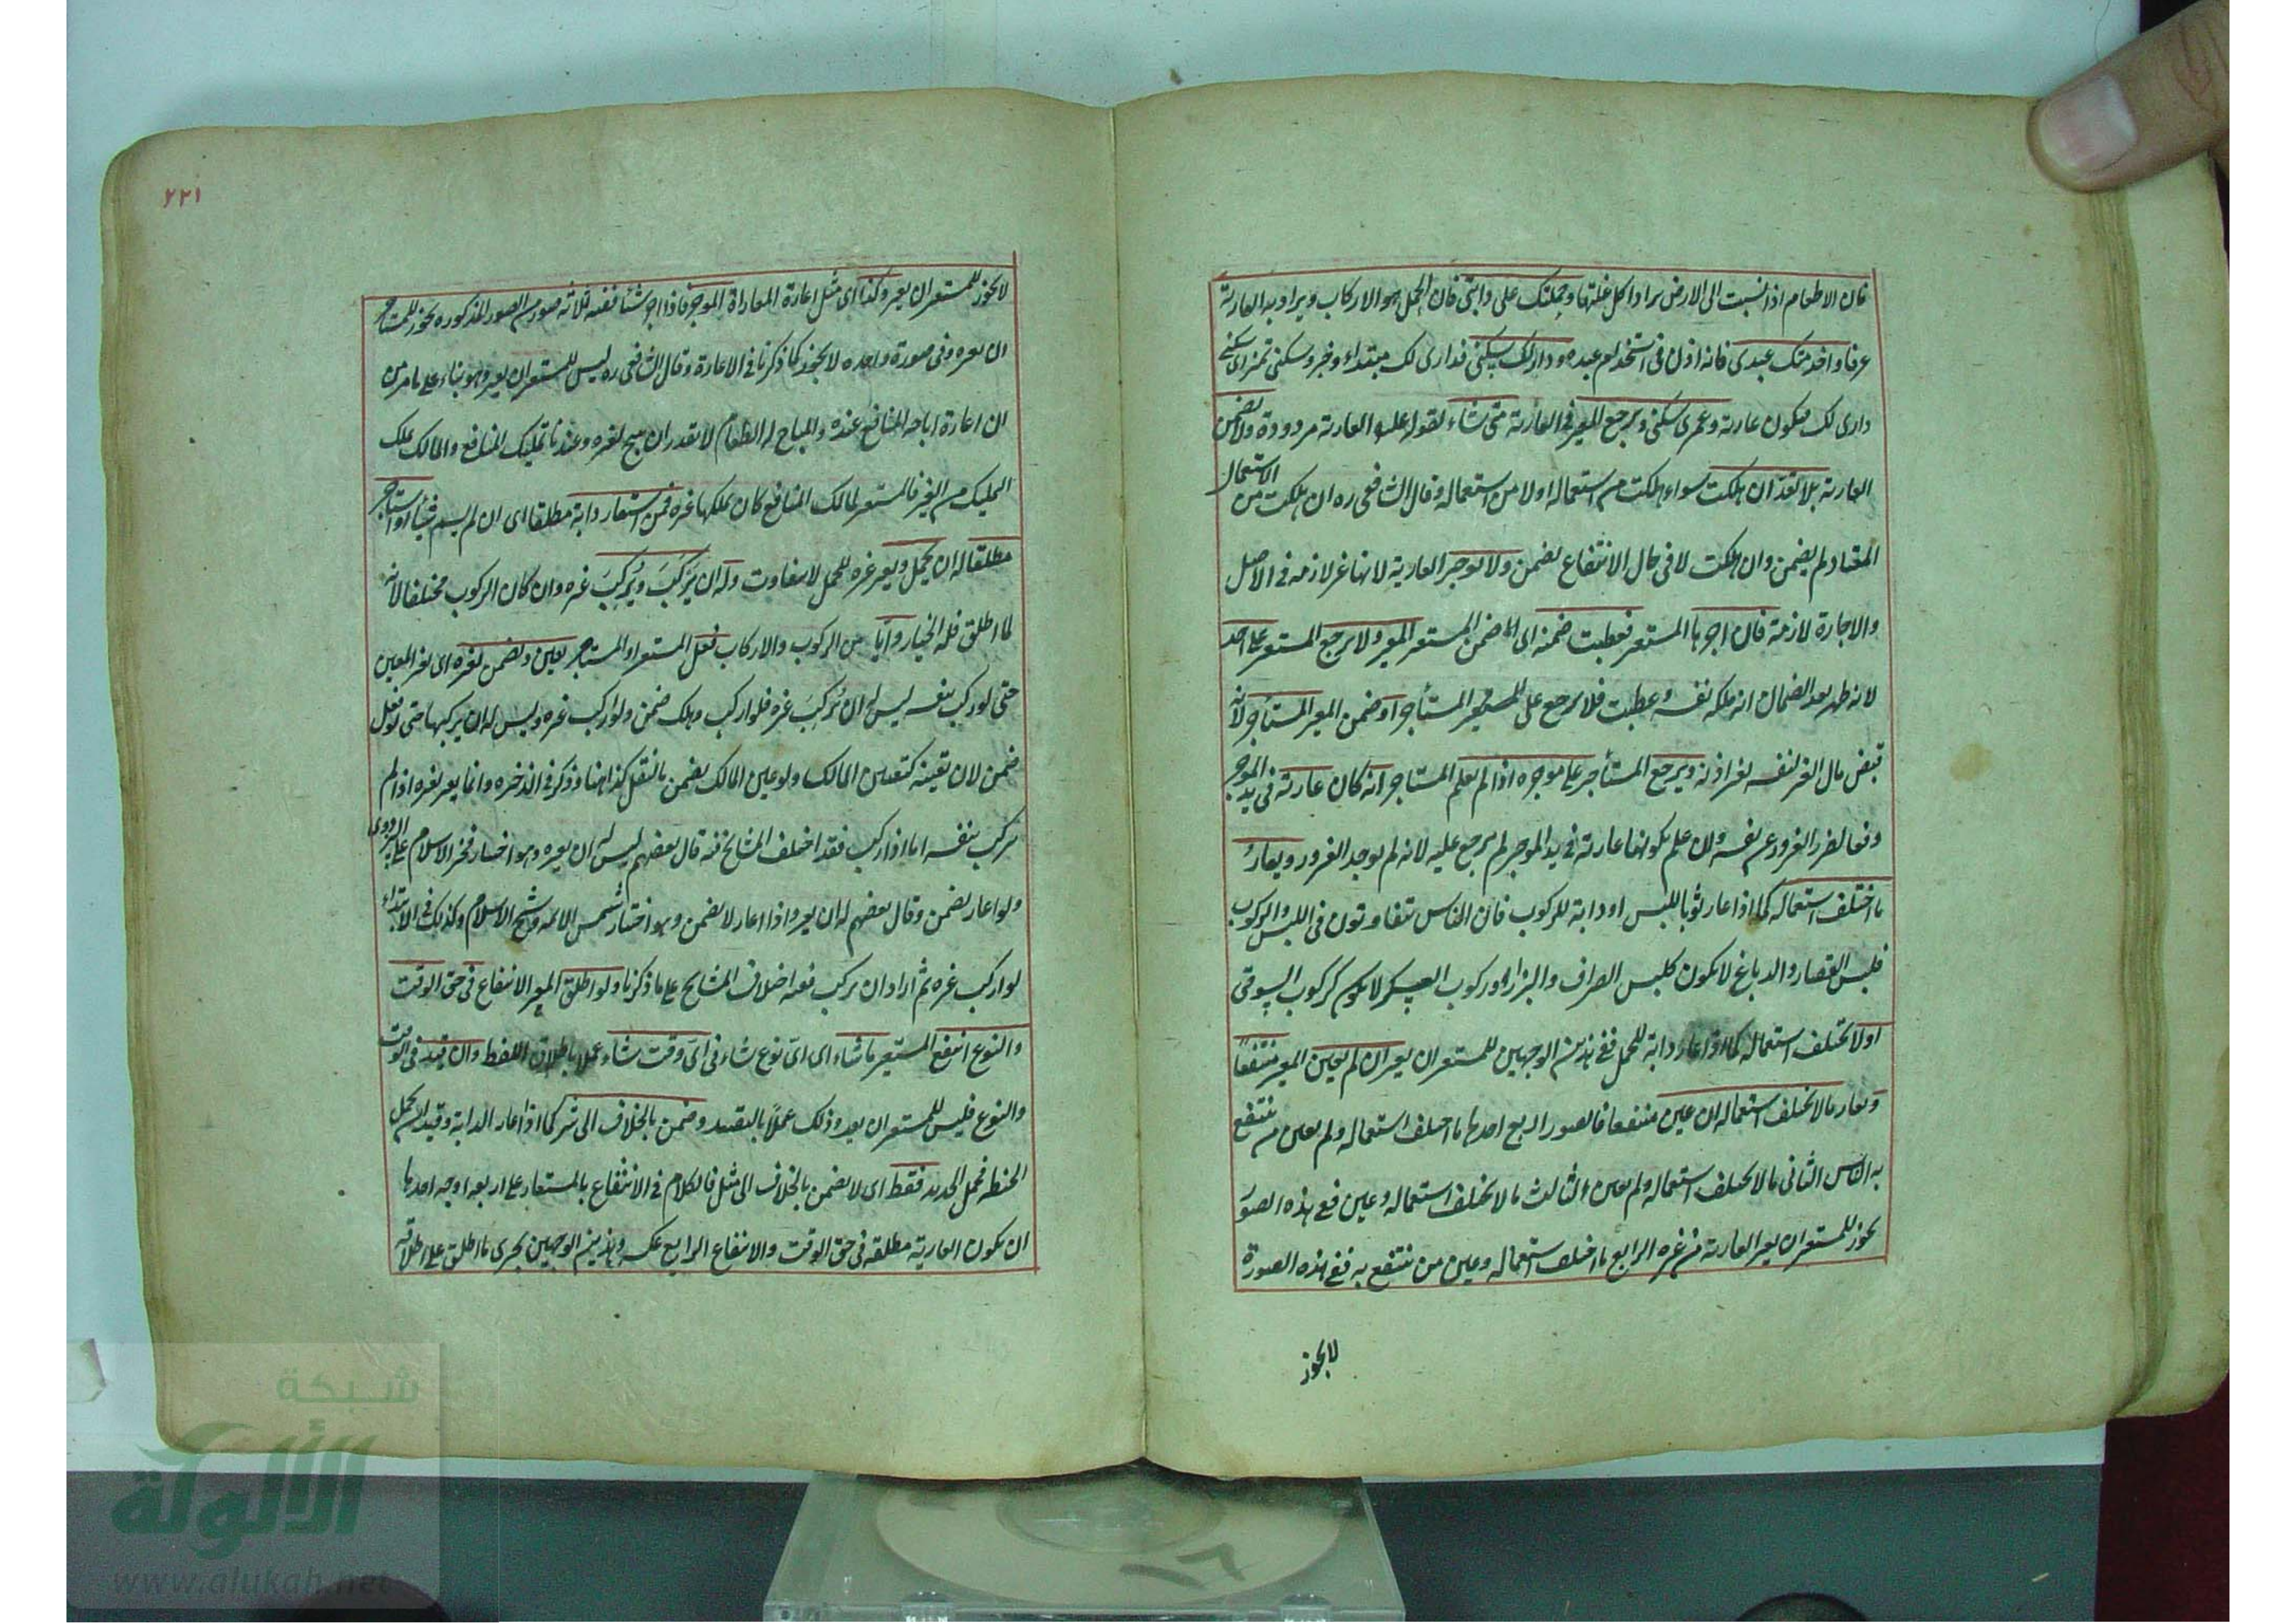 فان الاطعام اذا نسبت الى الارض يراد اكل غلتها وحملتك على دابتى فان الحمل هو الاركاب ويراد به العارية
عرفا واخدمتك عبدى فانه اذن فى استخدام عبده ودارى لك سكنى فدارى لك مبتداء وخبر وسكنى تمييز اى سكنى
دارى لك فيكون عارية وعمرى سكنى ويرجع المعير فى العارية متى شاء لقوله عليه العارية مردودة ولا يضمن
العارية بلا تعد ان هلكت سواء هلكت من استعماله اولا من استعماله وقال الشافعى ره ان هلكت من الاستعمال
المعتاد لم يضمن وان هلكت لا فى حال الانتفاع يضمن ولا يوجر العارية لانها غير لازمة فى الاصل
والاجارة لازمة فان اجرها المستعير فعطبت ضمنه اى ضمن المستعير المعير ولا يرجع المستعير على احد
لانه ظهر بعد الضمان انه ملكه نفسه وعطبت فلا يرجع على المستأجر او ضمن المعير المستأجر لانه
قبض مال الغير لنفسه بغير اذنه ويرجع المستأجر على موجره اذا لم يعلم المستاجر انه كان عارية فى يد الموجر
دفعا لضرر الغرور عن نفسه وان علم بكونها عارية فى يد الموجر لم يرجع عليه لانه لم يوجد الغرور ويعار
ما اختلف استعماله كما اذا عار ثوبا للبس او دابة للركوب فان الناس يتفاوتون فى اللبس والركوب
فلبس القصار والدباغ لا يكون كلبس الصراف والبزاز وركوب العسكر لا يكون كركوب السوقى
اولا يختلف استعماله كما اذا عار دابة للحمل ففى هذين الوجهين للمستعير ان يعير ان لم يعين المعير منتفعا
ويعار ما لا يختلف استعماله ان عين منتفعا فالصور اربع احدها ما اختلف استعماله ولم يعين من ينتفع
به الناس الثانى ما لا يختلف استعماله ولم يعين الثالث ما لا يختلف استعماله وعين ففى هذه الصور
يجوز للمستعير ان يعير العارية من غيره الرابع ما اختلف استعماله وعين من ينتفع به ففى هذه الصورة
لا يجوز
٢٢١
لا يجوز للمستعير ان يعير وكذا اى مثل اعارة المعار الموجر فاذا اجر شئا ففيه ثلاثه صور من الصور المذكوره يجوز للمستاجر
ان يعيره وفى صورة واحده لا يجوز كما ذكرنا فى الاعارة وقال الشافعى ره ليس للمستعير ان يعير وهو بناء على ما مر من
ان اعارة اباحة المنافع عنده والمباح له الطعام لا يقدر ان يبيح لغيره وعندنا تمليك المنافع والمالك يملك
التمليك من الغير فالمستعير لمالك المنافع كان يملكها غيره فمن استعار دابة مطلقا اى ان لم يسم شئا او استاجر
مطلقا له ان يحمل ويعير غيره للحمل لا يتفاوت وله ان يركب ويركب غيره وان كان الركوب مختلفا لانه
لما اطلق فله الخيار وايا من الركوب والاركاب فعل المستعير او المستاجر تعين ويضمن بغيره اى بغير المعين
حتى لو ركب بنفسه ليس له ان يركب غيره فلو اركب وهلك ضمن ولو اركب غيره وليس له ان يركبها حتى لو فعل
ضمن لان تعينه كتعيين المالك ولو عين المالك يضمن بالنقل كذا هنا وذكر فى الذخيره وانما يعير غيره اذا لم
يركب بنفسه اما اذا ركب فقد اختلف المشايخ فيه قال بعضهم ليس له ان يعيره وهو اختيار فخر الاسلام على البزدوى
ولو اعار يضمن وقال بعضهم له ان يعير واذا اعار لا يضمن وهو اختيار شمس الائمه وشيخ الاسلام وكذلك فى الابتداء
لو اركب غيره ثم اراد ان يركب فعلى اختلاف المشايخ على ما ذكرنا ولو اطلق المعير الانتفاع فى حق الوقت
والنوع انتفع المستعير ما شاء اى اىّ نوع شاء فى اىّ وقت شاء عملا باطلاق اللفظ وان قيد فى الوقت
والنوع فليس للمستعير ان يعدو ذلك عملا بالتقييد وضمن بالخلاف الى شر كما اذا عار الدابة وقيد ان يحمل
الحنطه فحمل الحديد فقط اى لا يضمن بالخلاف الى مثل فالكلام فى الانتفاع بالمستعار على اربعه اوجه احدها
ان يكون العارية مطلقه فى حق الوقت والانتفاع الرابع عكسه وهذين الوجهين يجرى ما اطلق على اطلاقه
شبكة
الألوكة
www.alukah.net